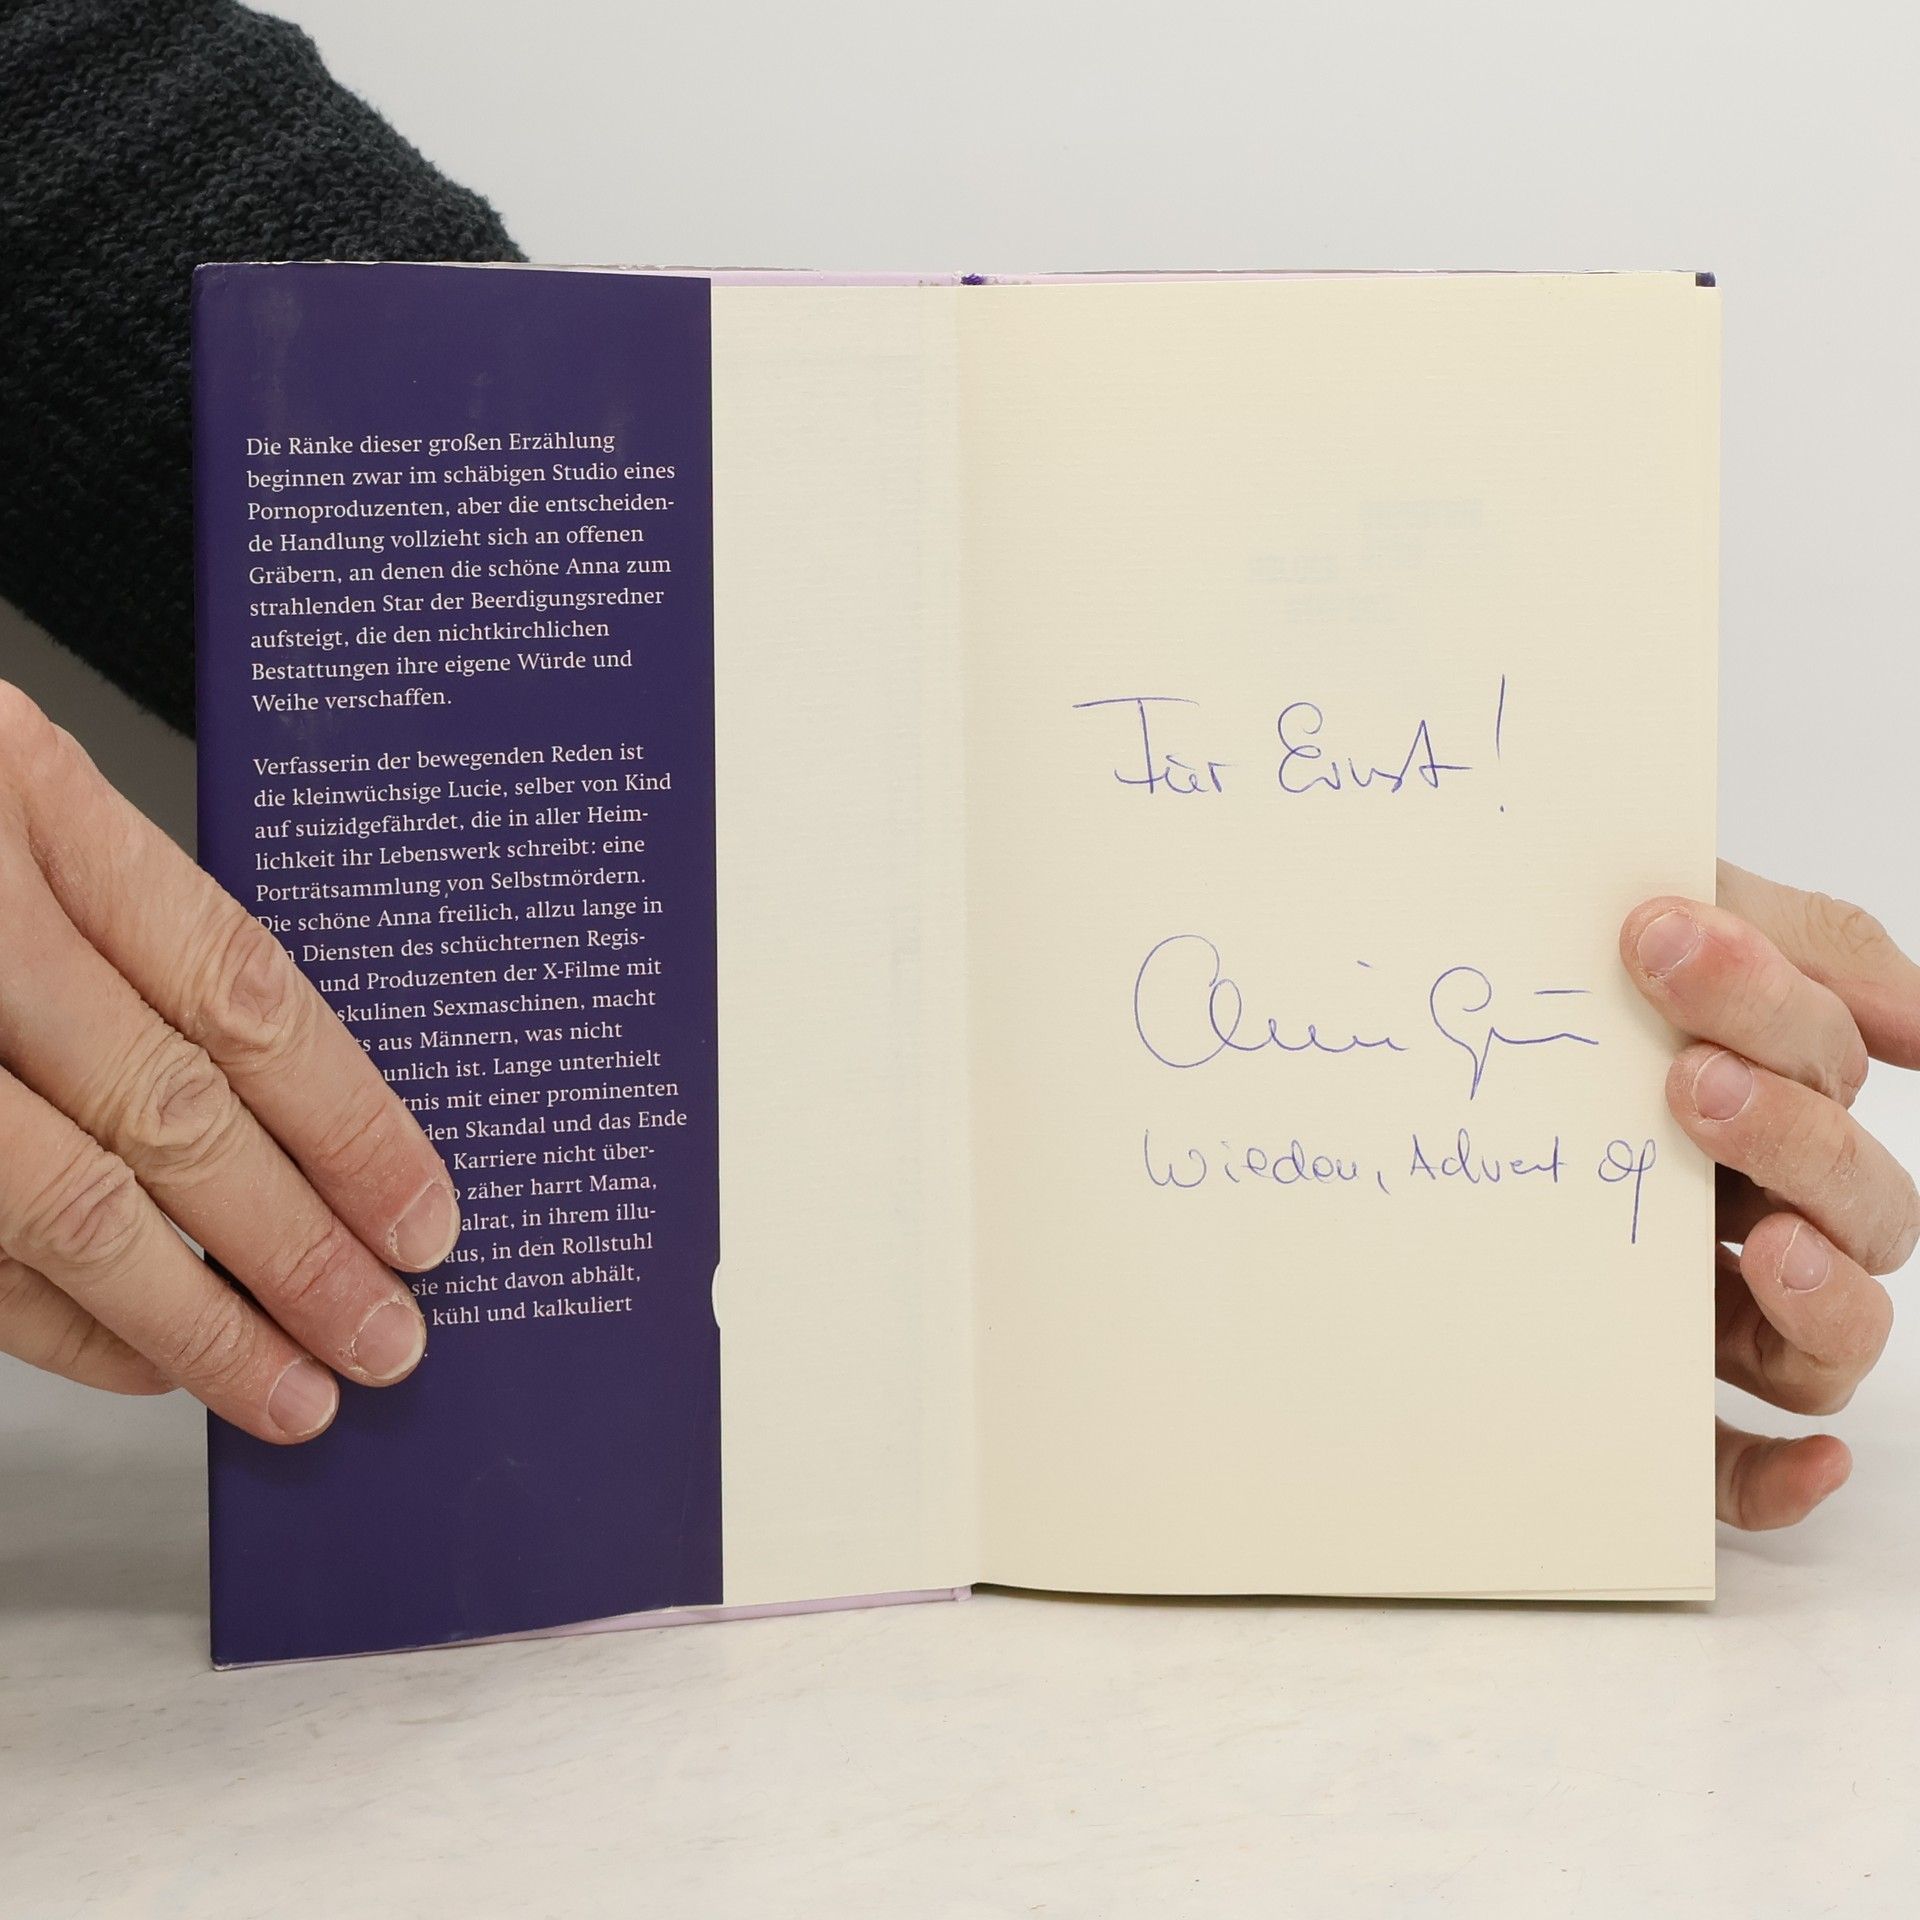 Die Ränke dieser großen Erzählung
beginnen zwar im schäbigen Studio eines
Pornoproduzenten, aber die entscheiden-
de Handlung vollzieht sich an offenen
Gräbern, an denen die schöne Anna zum
strahlenden Star der Beerdigungsredner
aufsteigt, die den nichtkirchlichen
Bestattungen ihre eigene Würde und
Weihe verschaffen.
Verfasserin der bewegenden Reden ist
die kleinwüchsige Lucie, selber von Kind
auf suizidgefährdet, die in aller Heim-
lichkeit ihr Lebenswerk schreibt: eine
Porträtsammlung von Selbstmördern.
Die schöne Anna freilich, allzu lange in
Diensten des schüchternen Regis-
und Produzenten der X-Filme mit
skulinen Sexmaschinen, macht
aus Männern, was nicht
unlich ist. Lange unterhielt
tnis mit einer prominenten
den Skandal und das Ende
Karriere nicht über-
zäher harrt Mama,
alrat, in ihrem illu-
aus, in den Rollstuhl
sie nicht davon abhält,
kühl und kalkuliert
Für Ernst!
Wieden, Advent